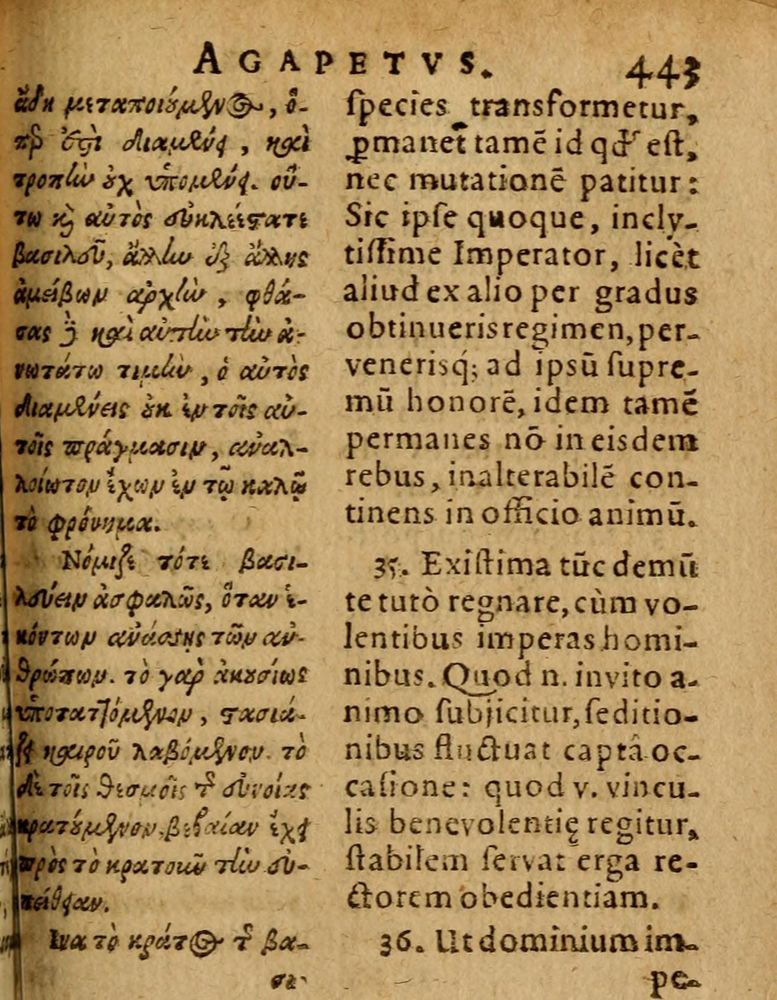 AGAPETVS. 443
ἄδη μεταποιούμενος, ὅ-
περ ἐστὶ διαμένει, καὶ
τροπὴν οὐχ ὑπομένει. οὕ-
τω καὶ αὐτὸς εὐκλεέστατε
βασιλεῦ, ἄλλην ἐξ ἄλλης
ἀμείβων ἀρχὴν, φθά-
σας δὲ καὶ αὐτὴν τὴν ἀ-
νωτάτω τιμὴν, ὁ αὐτὸς
διαμένεις ἐκ ἐν τοῖς αὐ-
τοῖς πράγμασιν, ἀναλ-
λοίωτον ἔχων ἐν τῷ καλῷ
τὸ φρόνημα.
Νόμιζε τότε βασι-
λεύειν ἀσφαλῶς, ὅταν ἑ-
κόντων ἀνάσσῃς τῶν ἀν-
θρώπων. τὸ γὰρ ἀκουσίως
ὑποταττόμενον, στασιά-
ζει καιροῦ λαβόμενον. τὸ
δὲ τοῖς θεσμοῖς τῆς εὐνοίας
κρατούμενον, βεβαίαν ἔχει
πρὸς τὸ κρατοῦν τὴν εὐ-
πείθειαν.
Ἵνα τὸ κράτος τῆς βα-
σι-
species transformetur,
ꝑmanet tamẽ id qď est,
nec mutationẽ patitur:
Sic ipse quoque, incly-
tissime Imperator, licèt
aliud ex alio per gradus
obtinueris regimen, per-
venerisq́; ad ipsũ supre-
mũ honorẽ, idem tamẽ
permanes nõ in eisdem
rebus, inalterabilẽ con-
tinens in officio animũ.
35. Existima tũc demũ
te tutò regnare, cùm vo-
lentibus imperas homi-
nibus. Quod n. invito a-
nimo subjicitur, seditio-
nibus fluctuat captâ oc-
casione: quod v. vincu-
lis benevolentię regitur,
stabilem servat erga re-
ctorem obedientiam.
36. Ut dominium im-
pe-